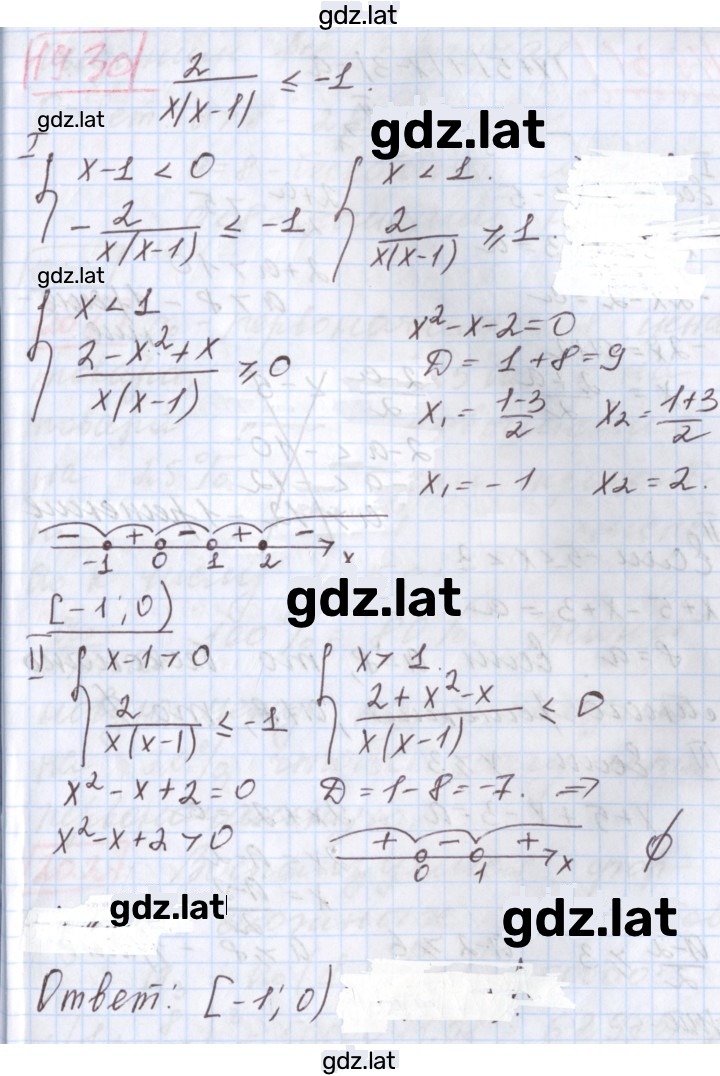 gdz.lat
1430
2/(x(x-1)) ≤ -1.
gdz.lat
gdz.lat
I { x-1 < 0 { x < 1.
-2/(x(x-1)) ≤ -1 2/(x(x-1)) ⩾ 1.
gdz.lat
{ x < 1 x²-x-2=0
(2-x²+x)/(x(x-1)) ⩾ 0 D = 1+8=9
x₁ = (1-3)/2 x₂ = (1+3)/2
x₁ = -1 x₂ = 2.
- + - + -
-1 0 1 2 x
[-1; 0)
gdz.lat
II { x-1 > 0 { x > 1.
2/(x(x-1)) ≤ -1 (2+x²-x)/(x(x-1)) ≤ 0
x²-x+2=0 D=1-8=-7. ⇒
x²-x+2 > 0
+ - +
0 1 x ∅
gdz.lat
gdz.lat
Ответ: [-1; 0)
gdz.lat